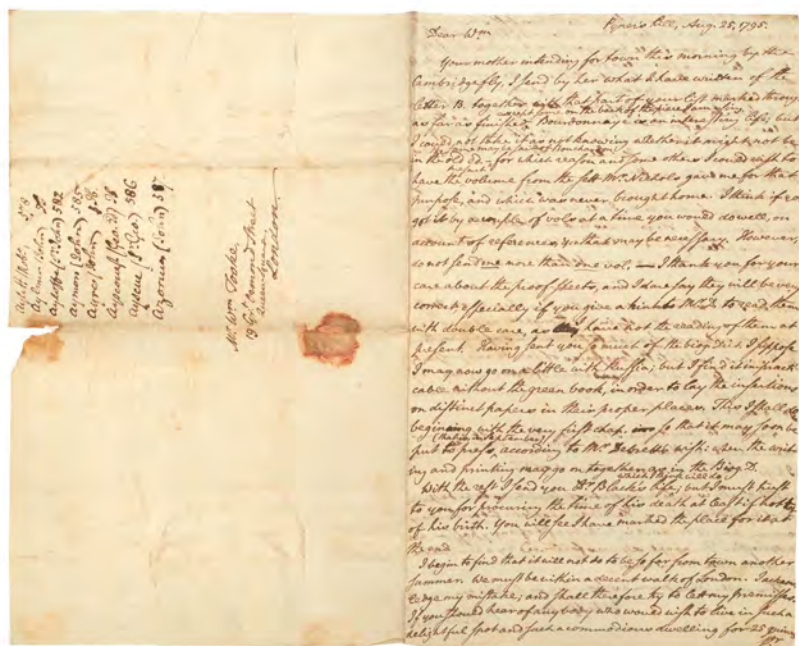 Aylett Rob.
Aylmer (John)
Ayloffe (Sr. John) 582
Aymon (John) 585
Ayres (John)
Ayscough (Geo.)
Ayscue (Sr. Geo) 586
Azorius (John) 587
Mr. Wm Tooke,
Gt. Ormond Street
Queen Square
London
Aug. 25, 1795.
Dear Wm
Your mother intending for town this morning by the
Cambridge fly, I send by her what I have written of the
letter B. together with that part of your list marked through
as far as finished. Bourdonnaye is an interesting life; but
I could not take it as not knowing whether it might not be
in the old ed - for which reason and some others I could wish to
have the volume from the sett Mr. Nichols gave me for that
purpose, and which was never brought home. I think if you
got it by a couple of vols at a time you would do well, on
account of references that may be necessary. However,
do not send me more than one vol. — I thank you for your
care about the proof sheets, and I dare say they will be very
correct, especially if you give a hint to Mr. to read them
with double care, as they have not the reading of them at
present. Having sent you so much of the biog. dict. I suppose
I may now go on a little with Russia; but I find it impracti-
cable without the green book, in order to lay the insertions
on distinct papers in their proper places. This I shall do
beginning with the very first chap. so that it may soon be
put to press, according to Mr. Debrett's wish: when the writ-
ing and printing may go on together as in the Biog. D.
With the rest I send you Dr. Black's life; but I must trust
to you for procuring the time of his death at least if not
of his birth. You will see I have marked the place for it at
the end
I begin to find that it will not do to be so far from town another
summer. We must be within a decent walk of London. I acknow-
ledge my mistake; and shall therefore try to let my premisses.
If you should hear of any body who would wish to live in such a
delightful spot and such a commodious dwelling for 25 guineas